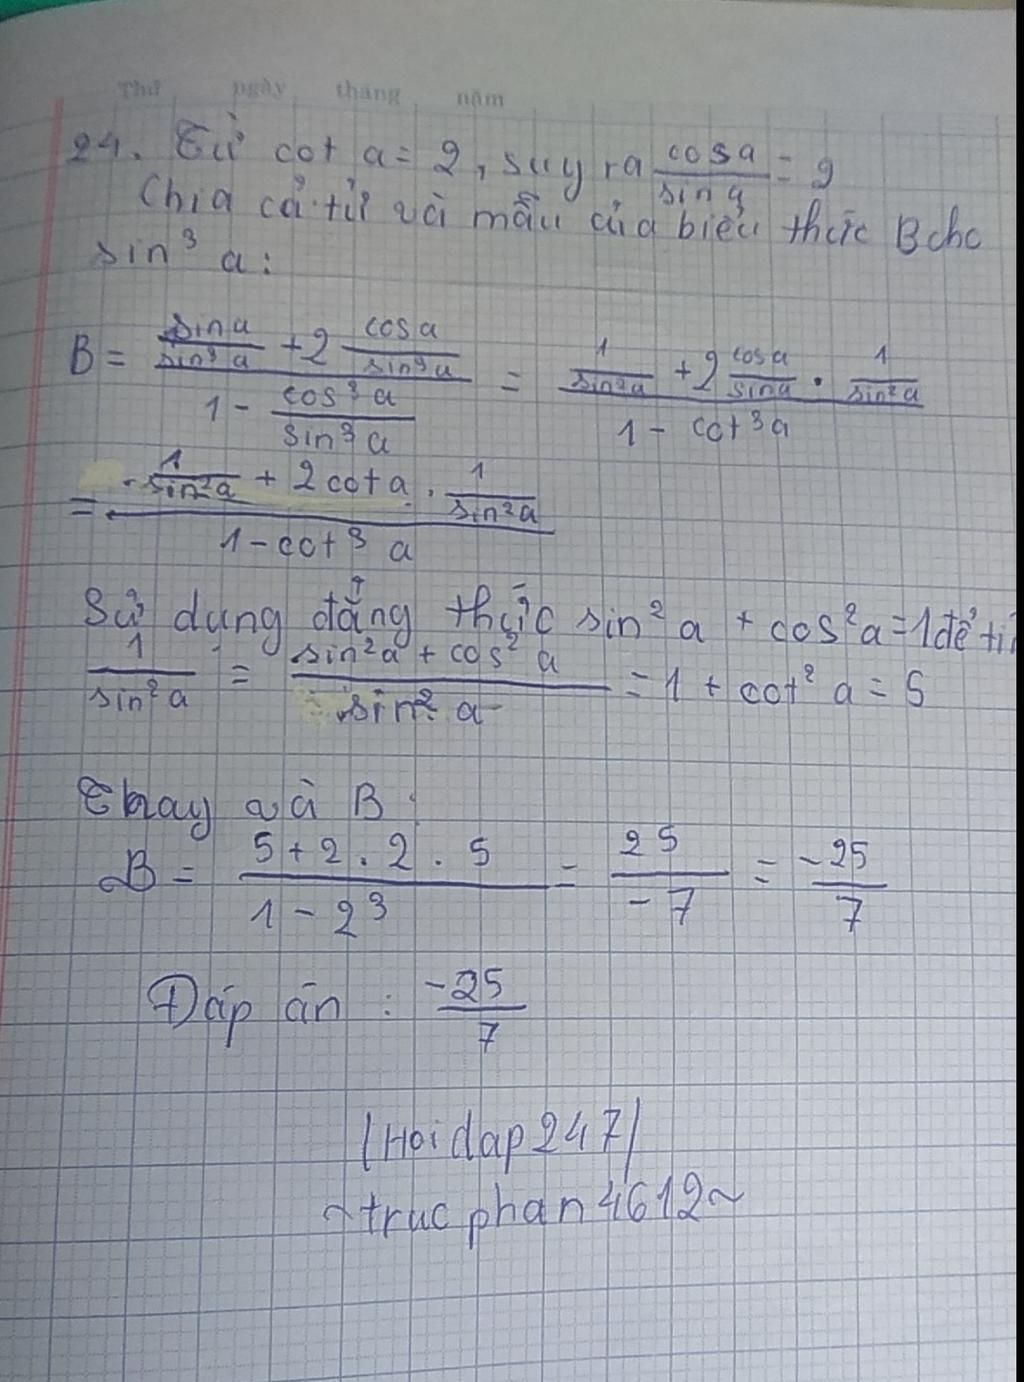 Thứ ngày tháng năm
24. Từ cot a = 2, suy ra cos a / sin a = 2
Chia cả tử và mẫu của biểu thức B cho
sin³ a:
B = (sin a / sin³ a + 2 cos a / sin³ a) / (1 - cos³ a / sin³ a) = (1 / sin² a + 2 cos a / sin a . 1 / sin² a) / (1 - cot³ a)
= (1 / sin² a + 2 cot a . 1 / sin² a) / (1 - cot³ a)
Sử dụng đẳng thức sin² a + cos² a = 1 để
1 / sin² a = (sin² a + cos² a) / sin² a = 1 + cot² a = 5
Thay và B :
B = (5 + 2 . 2 . 5) / (1 - 2³) = 25 / -7 = -25 / 7
Đáp án : -25 / 7
(Hoidap247)
~trucphan4612~